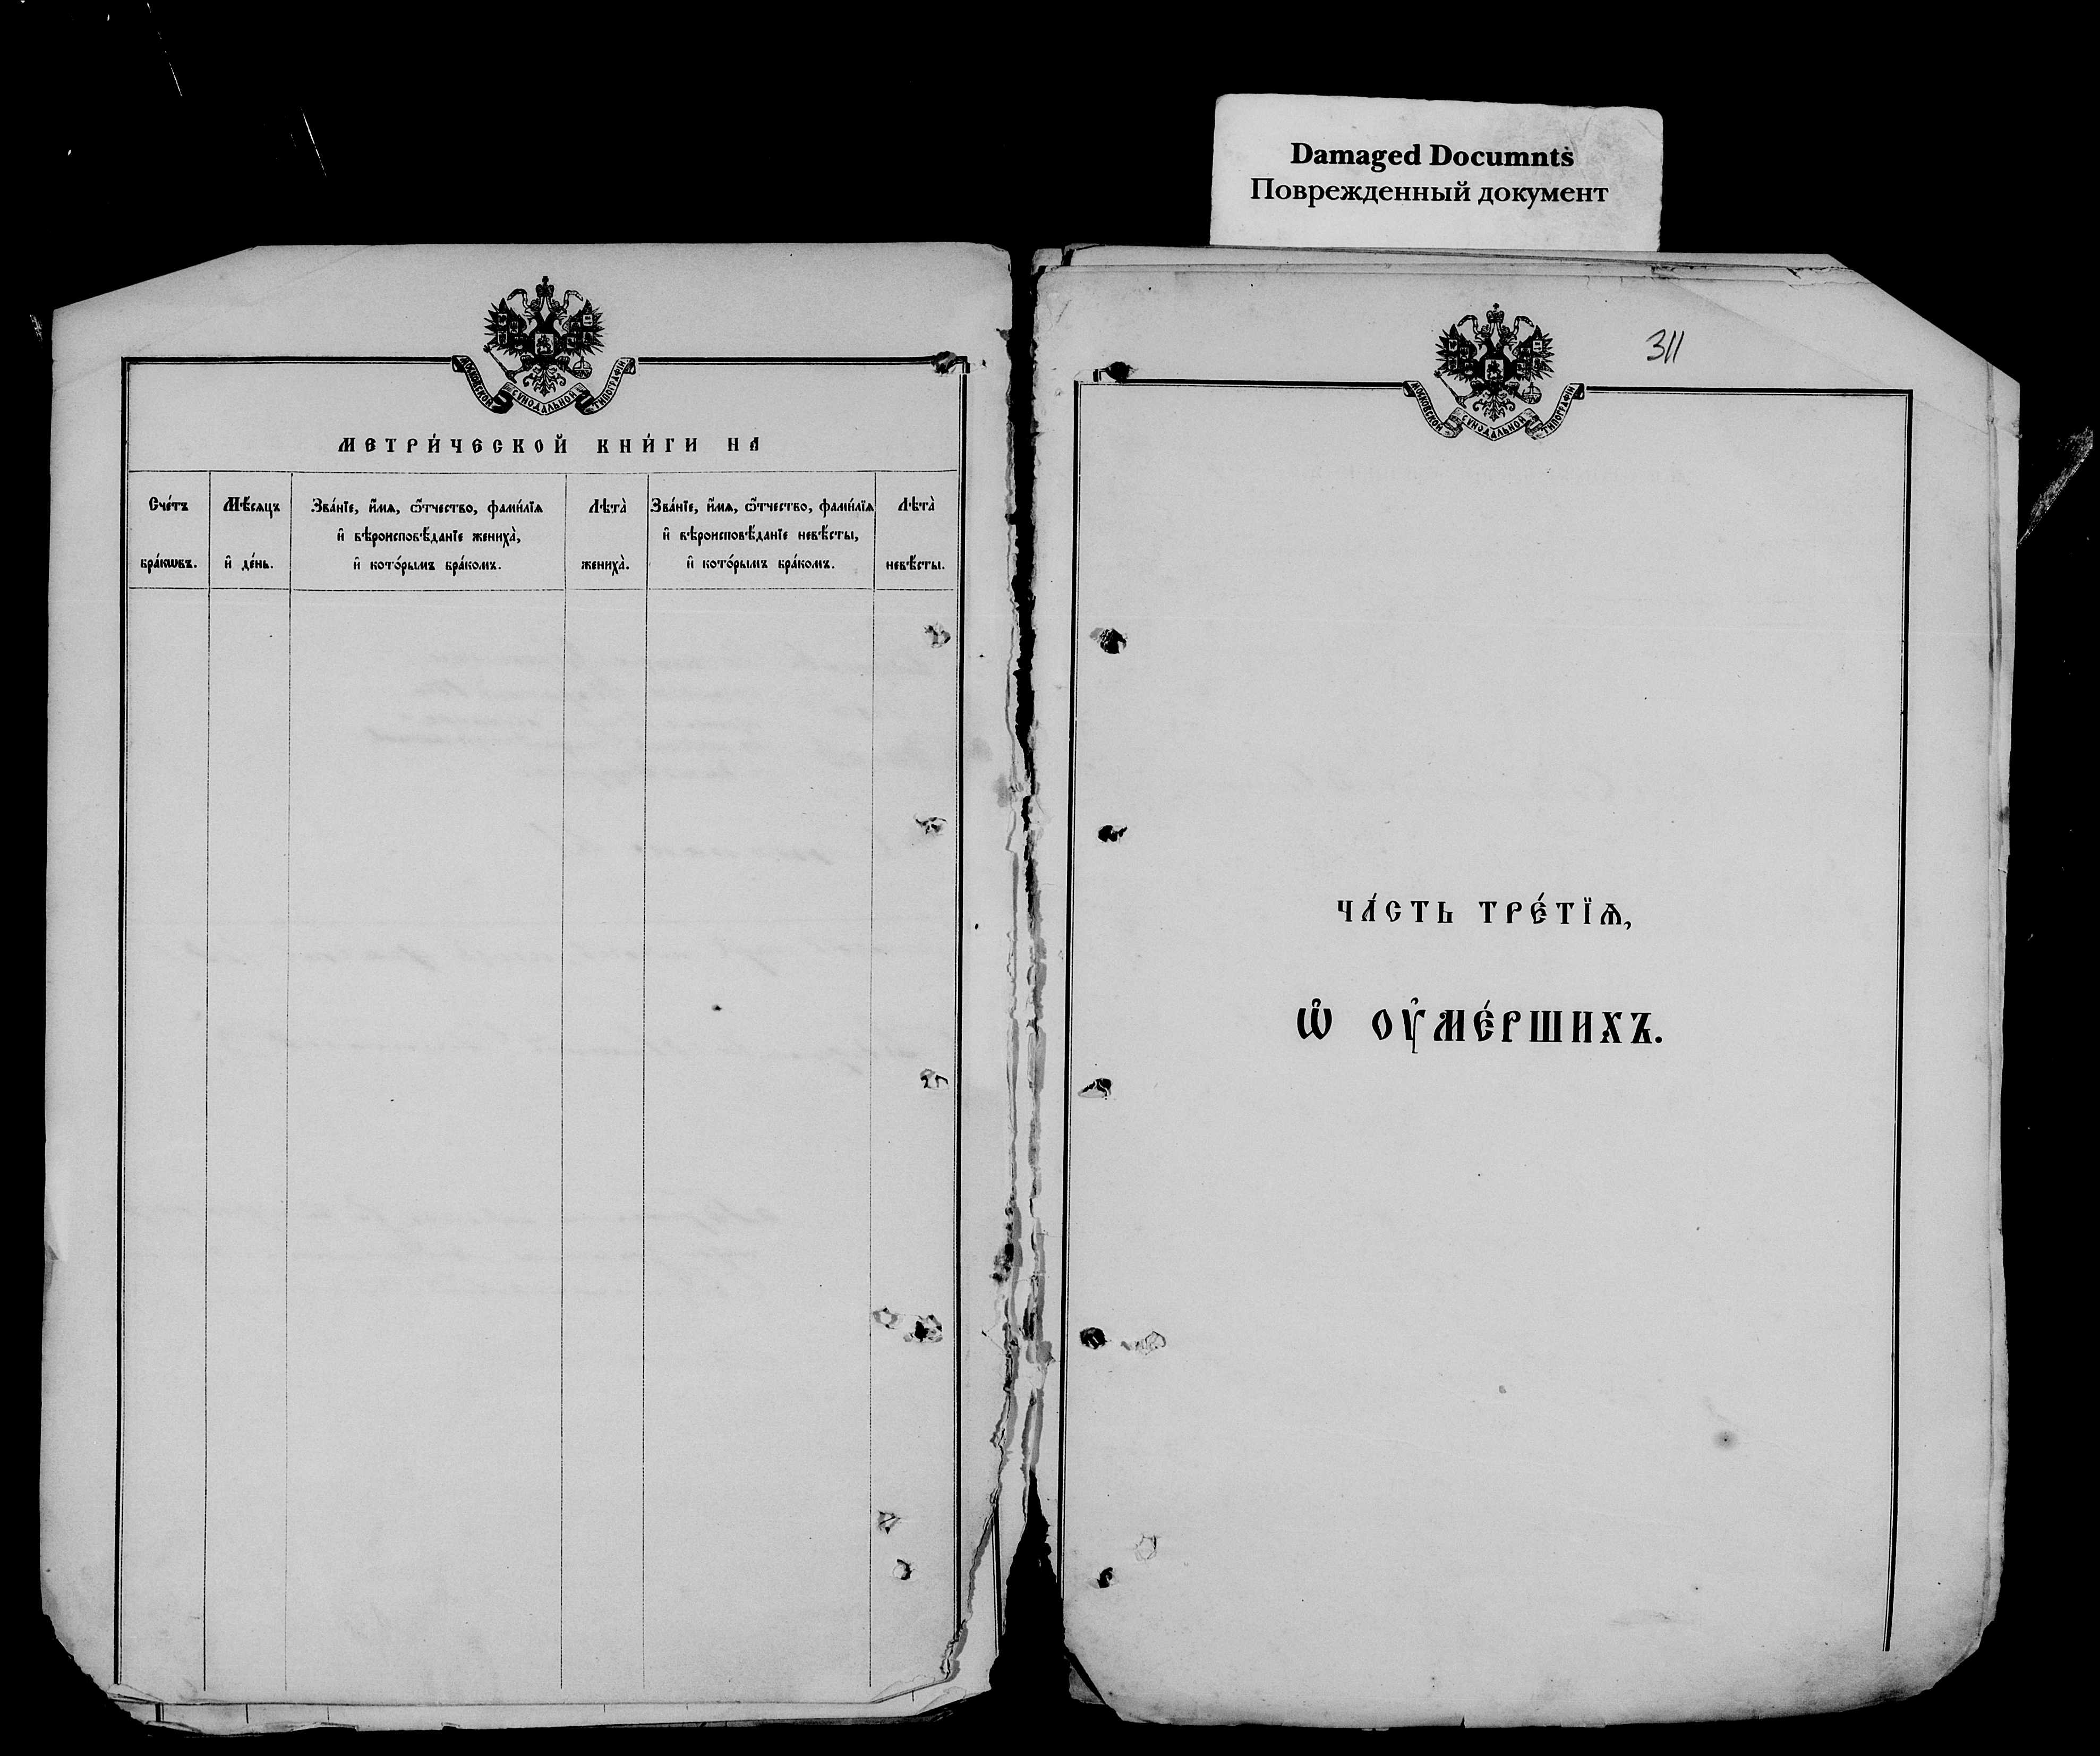 Damaged Documnts
Поврежденный документ
МОСКОВСКОЙ СѴНОДАЛЬНОЙ ТИПОГРАФІИ
МЕТРИ́ЧЕСКОЙ КНИ́ГИ НА
Сче́тъ
бра́кѡвъ.
Мѣ́сяцъ
и҆ де́нь.
Зва́нїе, и҆́мѧ, ѻ҆́тчество, фами́лїѧ
и҆ вѣроисповѣ́данїе жениха̀,
и҆ кото́рымъ бра́комъ.
Лѣта̀
жениха̀.
Зва́нїе, и҆́мѧ, ѻ҆́тчество, фами́лїѧ
и҆ вѣроисповѣ́данїе невѣ́сты,
и҆ кото́рымъ бра́комъ.
Лѣта̀
невѣ́сты.
311
МОСКОВСКОЙ СѴНОДАЛЬНОЙ ТИПОГРАФІИ
ЧА́СТЬ ТРЕ́ТЇѦ,
Ѡ҆ ОУ҆МЕ́РШИХЪ.